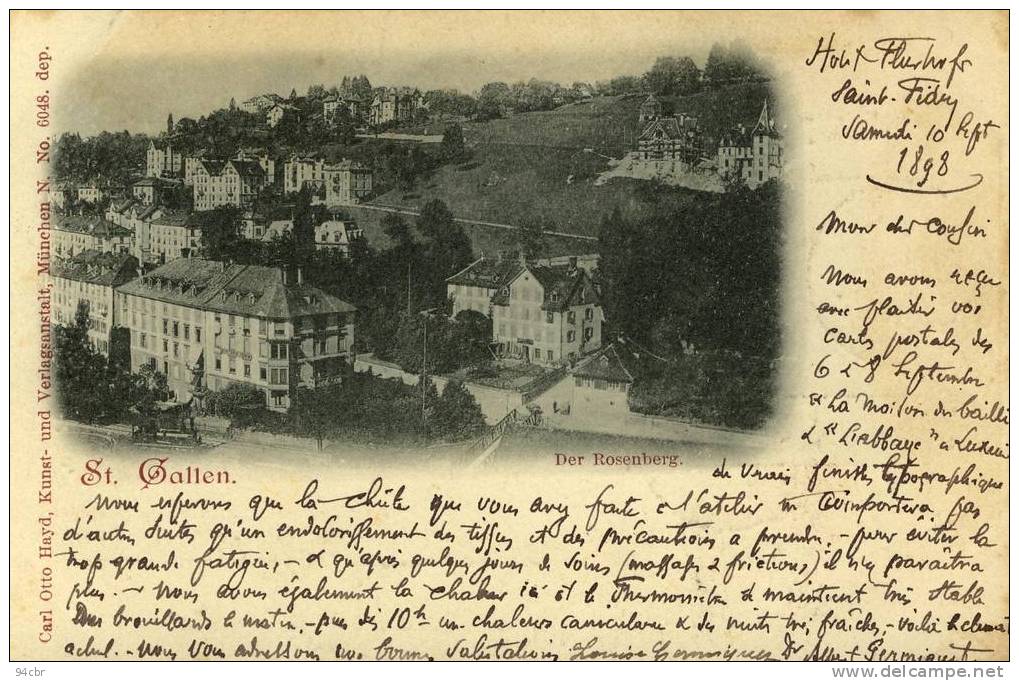 Carl Otto Hayd, Kunst- und Verlagsanstalt, München N No. 6048. dep.
Samedi 10 Sept
1898
Mon cher Cousin
Nous avons reçu
avec plaisir vos
cartes postales des
6 & 8 Septembre
"La Maison du bailli
& "L'abbaye" a Luxeuil
de vraies finesses typographiques
St. Gallen.
Der Rosenberg.
Nous esperons que la chûte que vous avez faite à l'atelier n'emportera pas
d'autres suites qu'un endolorissement des tissus et des précautions a prendre, - pour éviter la
trop grande fatigue, - & qu'après quelques jours de soins (massages & frictions,) il n'y paraîtra
plus. - Nous avons également la chaleur ici et le Thermomètre se maintient très stable
Des brouillards le matin, - puis dès 10h une chaleur caniculaire & des nuits très fraîches, - voilà le climat
actuel. - Nous vous adressons nos bonnes salutations Louise Germiquet Dr Albert Germiquet
94cbr
www.delcampe.net